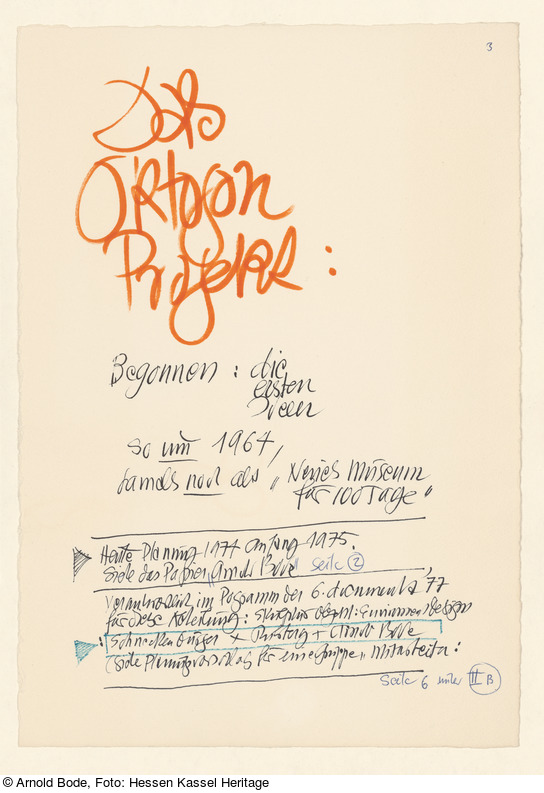 3
Das
Oktogon
Projekt :
Begonnen : die
ersten
Ideen
so um 1964,
damals noch als „Neues Museum
für 100 Tage“
Heute Planung 1974 Anfang 1975.
Siehe das Papier „Arnold Bode“ Seite 2
im Programm der 6. documenta 77
für diese Abteilung :
Schneckenburger + + Arnold Bode
(siehe Planungsvorschlag für eine Gruppe „Mitarbeiter :
Seite 6 unter II B
© Arnold Bode, Foto: Hessen Kassel Heritage